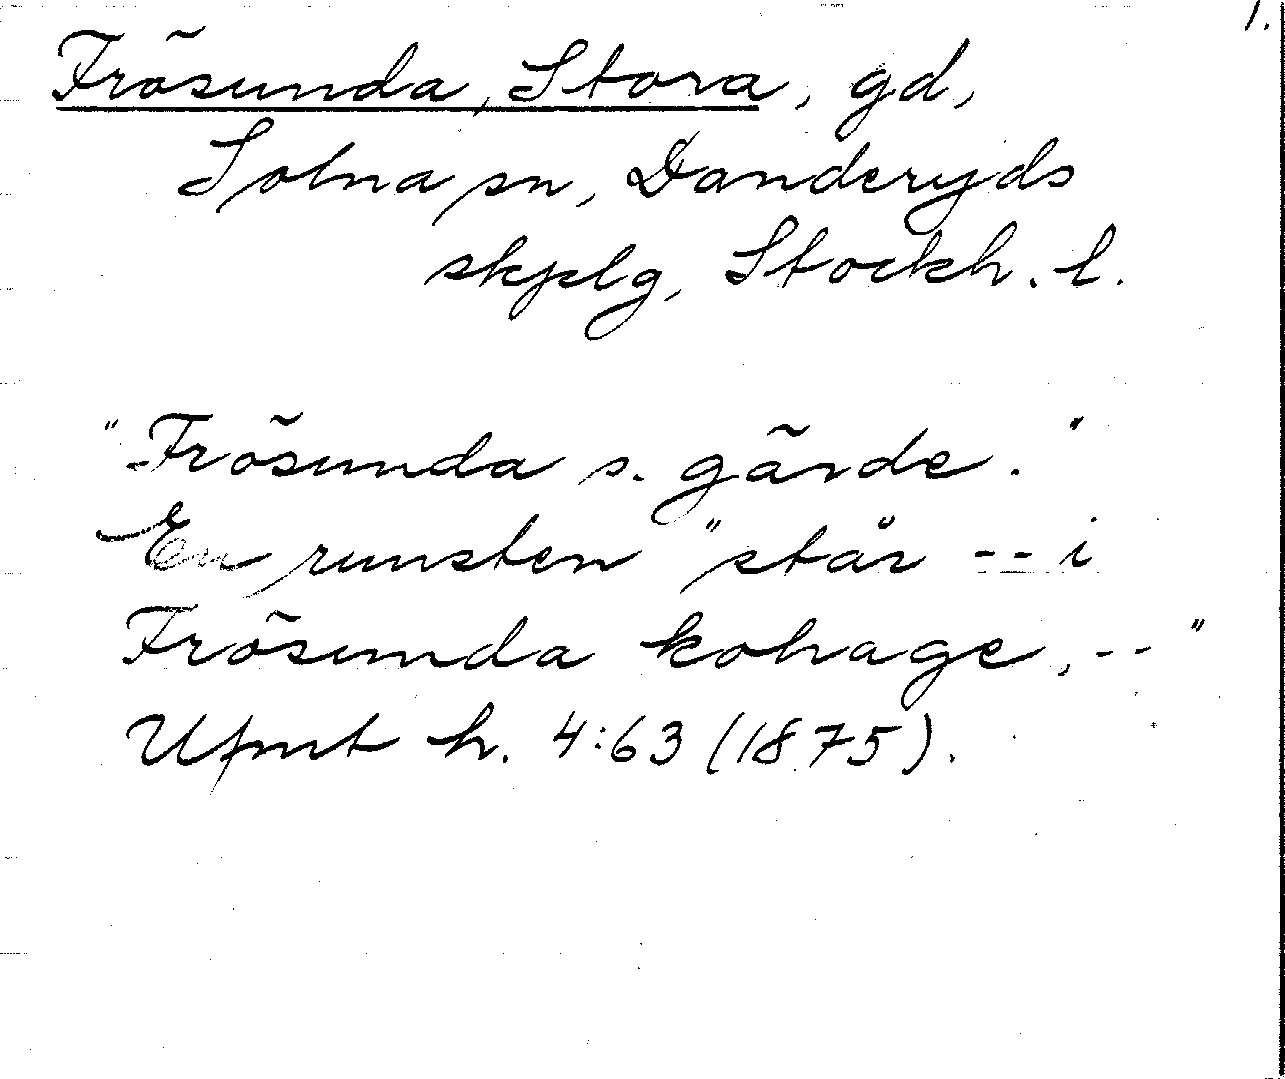 1.
Frösunda, Stora, gd,
Solna sn, Danderyds
skplg, Stockh. l.
"Frösunda s. gärde."
En runsten "står -- i
Frösunda kohage, --"
Upmt h. 4:63 (1875).